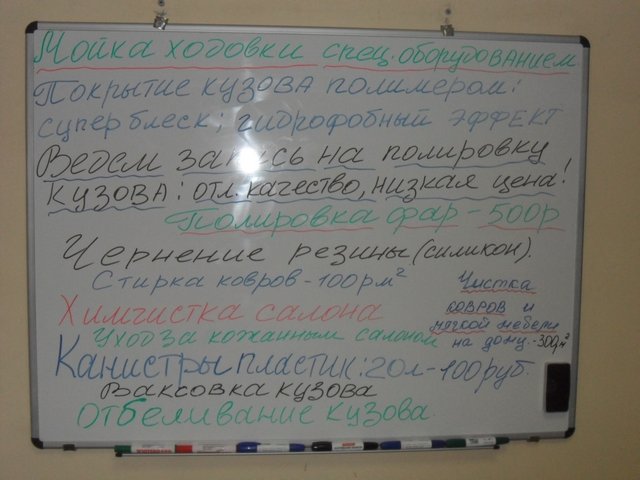 Мойка ходовки спец. оборудованием
Покрытие кузова полимером:
супер блеск; гидрофобный эффект
Ведем запись на полировку
кузова: отл. качество, низкая цена!
Полировка фар - 500р
Чернение резины (силикон).
Стирка ковров - 100р м²
Химчистка салона
Уход за кожанным салоном
Чистка
ковров и
мягкой мебели
на дому. - 300р м²
Канистры пластик: 20л - 100руб.
Ваксовка кузова
Отбеливание кузова.